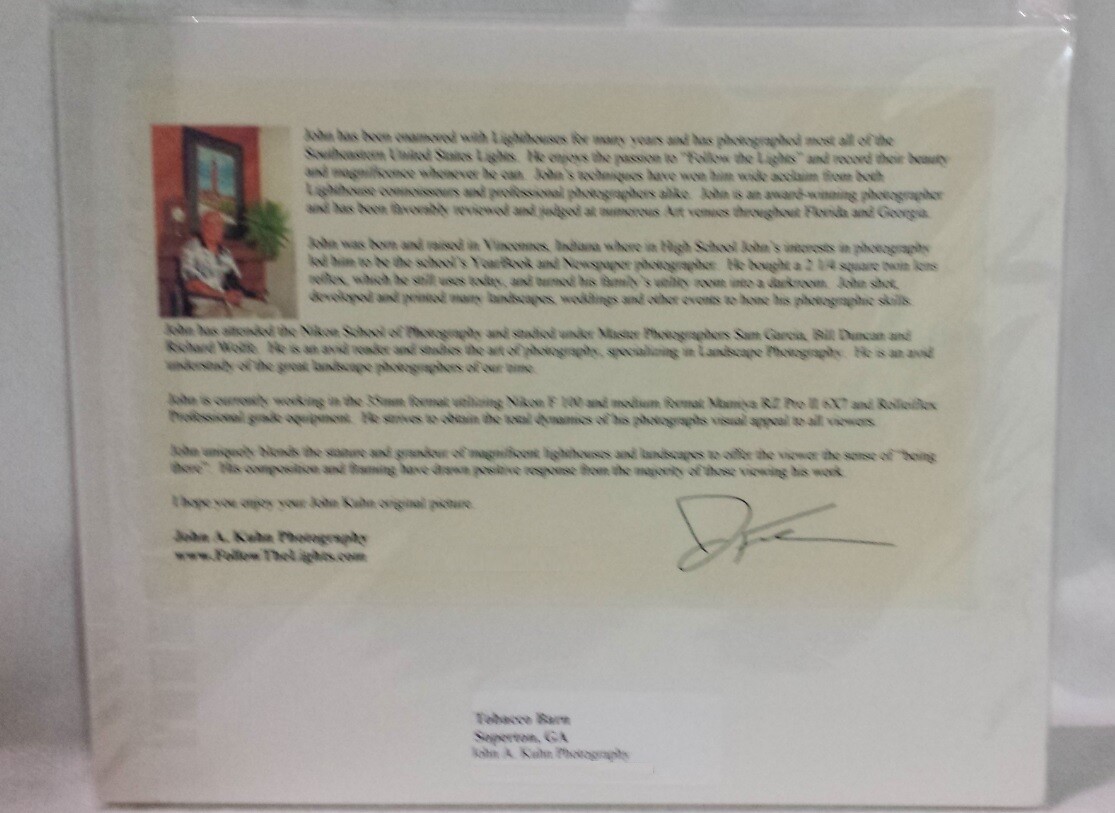 John has been enamored with Lighthouses for many years and has photographed most all of the
Southeastern United States Lights. He enjoys the passion to "Follow the Lights" and record their beauty
and magnificence whenever he can. John's techniques have won him wide acclaim from both
Lighthouse connoisseurs and professional photographers alike. John is an award-winning photographer
and has been favorably reviewed and judged at numerous Art venues throughout Florida and Georgia.
John was born and raised in Vincennes, Indiana where in High School John's interests in photography
led him to be the school's YearBook and Newspaper photographer. He bought a 2 1/4 square twin lens
reflex, which he still uses today, and turned his family's utility room into a darkroom. John shot,
developed and printed many landscapes, weddings and other events to hone his photographic skills.
John has attended the Nikon School of Photography and studied under Master Photographers Sam Garcia, Bill Duncan and
Richard Wolfe. He is an avid reader and studies the art of photography, specializing in Landscape Photography. He is an avid
understudy of the great landscape photographers of our time.
John is currently working in the 35mm format utilizing Nikon F 100 and medium format Mamiya RZ Pro II 6X7 and Rolleiflex
Professional grade equipment. He strives to obtain the total dynamics of his photographs visual appeal to all viewers.
John uniquely blends the stature and grandeur of magnificent lighthouses and landscapes to offer the viewer the sense of "being
there". His composition and framing have drawn positive response from the majority of those viewing his work.
I hope you enjoy your John Kuhn original picture.
John A. Kuhn Photography
www.FollowTheLights.com
Tobacco Barn
Soperton, GA
John A. Kuhn Photography